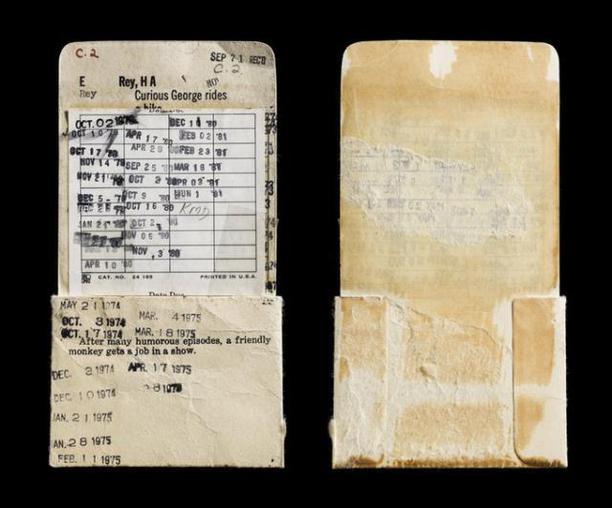 C. 2
SEP 71 REC'D
C. 2
E Rey, H A
Rey Curious George rides
a bike
OCT. 02 1978 DEC 1 80
OCT 10 79 APR 17 80 FEB 02 '81
OCT 17 79 APR 29 80 FEB 23 '81
NOV 14 79 SEP 25 80 MAR 16 '81
NOV 21 79 OCT 2 80 APR 02 '81
DEC 5 - 79 OCT 9 80 JUN 1 '81
OCT 16 '80
JAN 24 OCT 2 '80
NOV 05 '80
NOV 3 '80
APR 10 '80
CAT. NO. 24 189 PRINTED IN U.S.A.
Date Due
MAY 2 1 1974
OCT. 3 1974 MAR. 4 1975
OCT. 1 7 1974 MAR. 1 8 1975
After many humorous episodes, a friendly
monkey gets a job in a show.
DEC. 3 1974 APR. 1 7 1975
DEC. 1 0 1974
JAN. 2 1 1975
AN. 2 8 1975
FEB. 1 1 1975